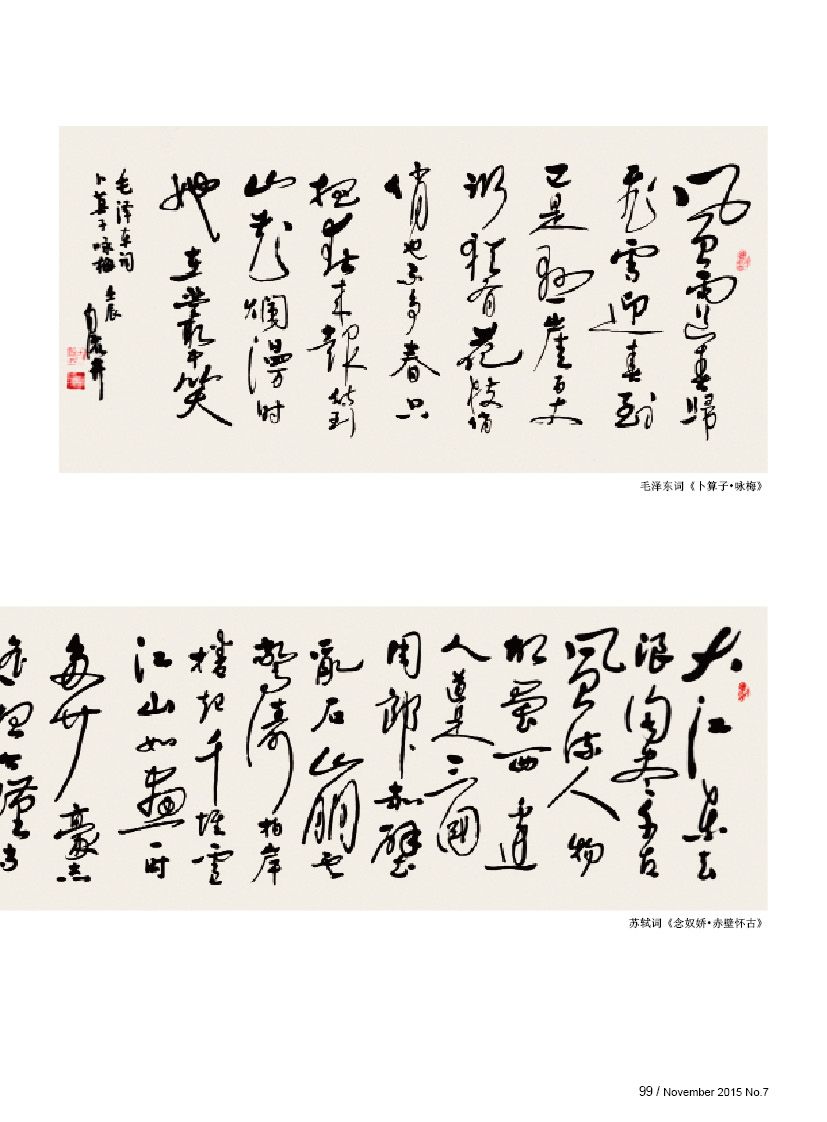 風雨送春歸
飛雪迎春到
已是懸崖百丈
冰猶有花枝俏
俏也不爭春只
把春來報待到
山花爛漫時
她在叢中笑
毛泽东词
卜算子咏梅 壬辰
毛泽东词《卜算子•咏梅》
大江東去
浪淘盡千古
風流人物
故壘西邊
人道是三國
周郎赤壁
亂石崩雲
驚濤拍岸
捲起千堆雪
江山如畫一時
多少豪杰
苏轼词《念奴娇•赤壁怀古》
99 / November 2015 No.7